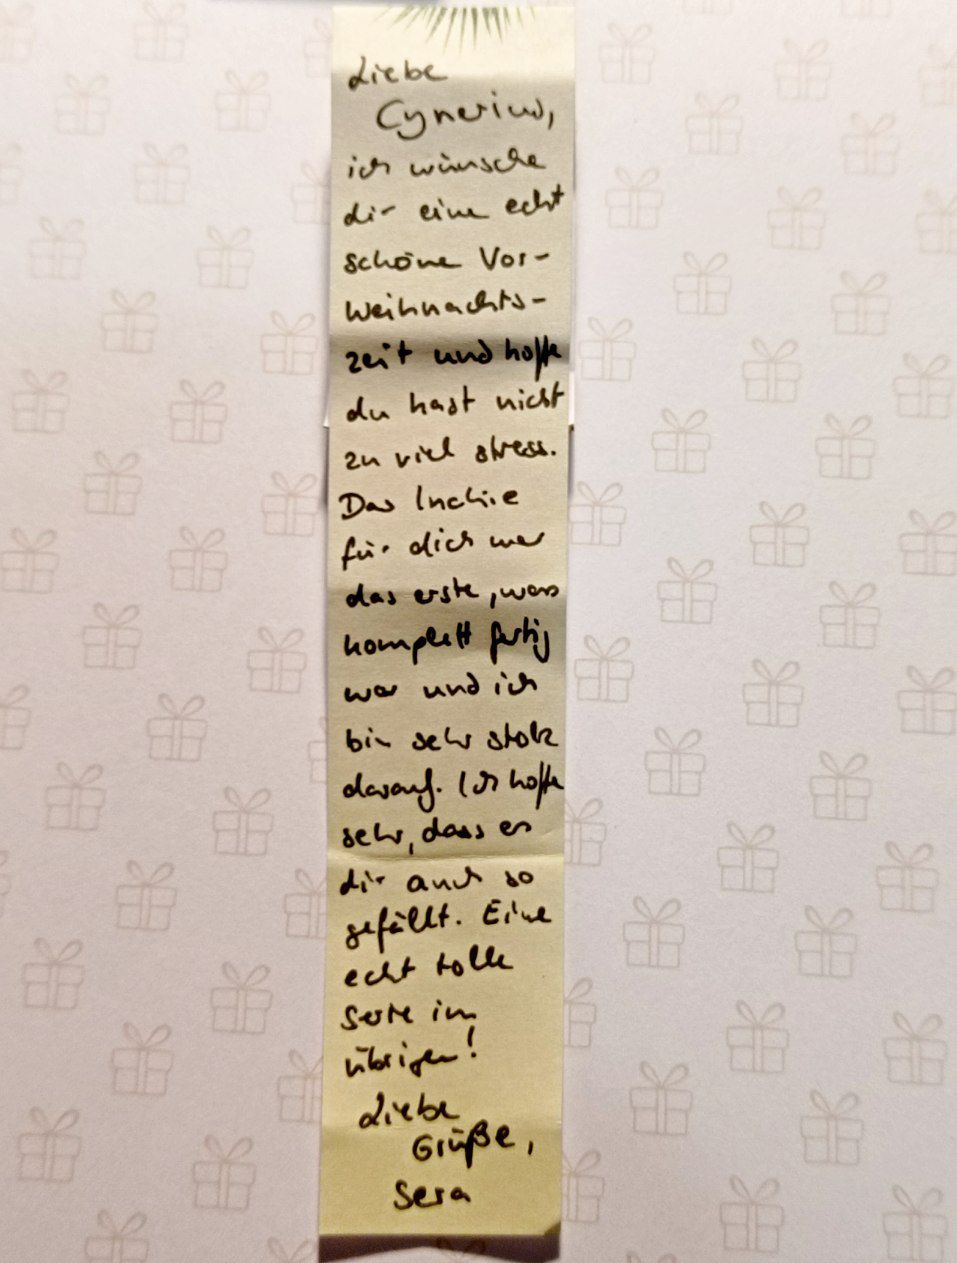 Liebe
Cynerius,
ich wünsche
dir eine echt
schöne Vor-
weihnachts-
zeit und hoffe
du hast nicht
zu viel stress.
Das Inchie
für dich war
das erste, was
komplett fertig
war und ich
bin sehr stolz
darauf. Ich hoffe
sehr, dass es
dir auch so
gefällt. Eine
echt tolle
Serie im
übrigen!
Liebe
Grüße,
Sera